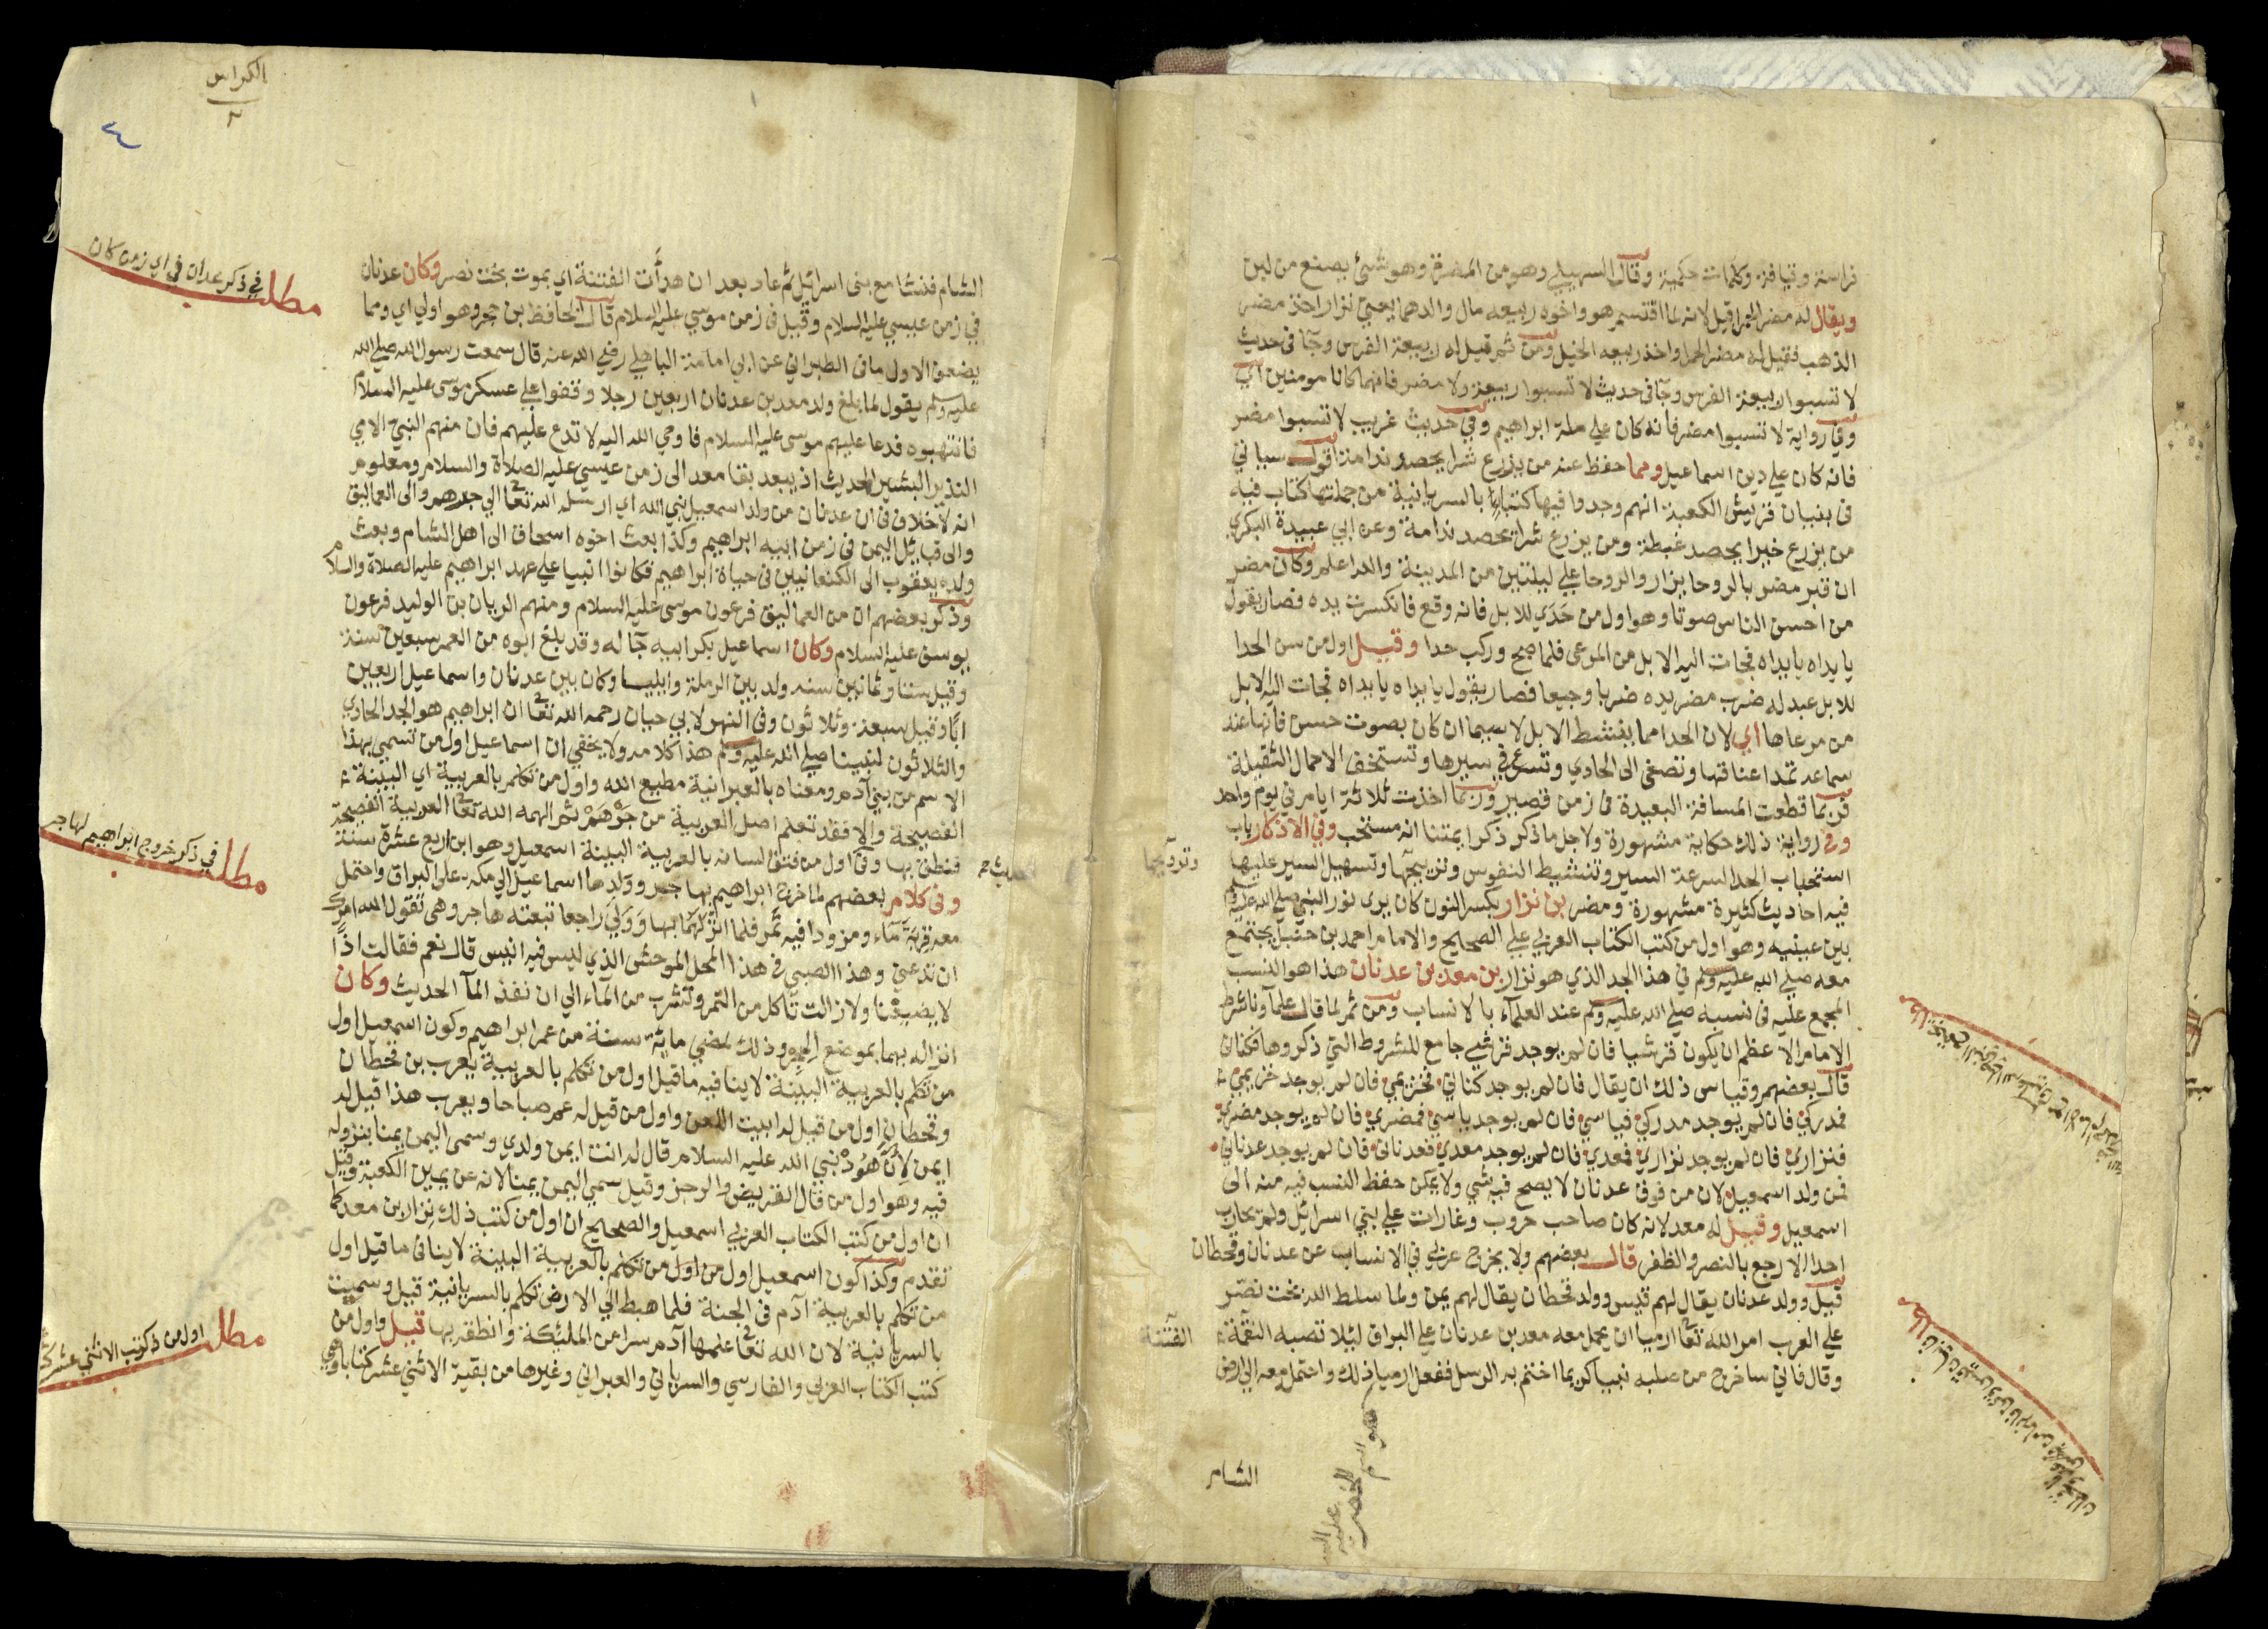 فراسة وقيافة وكلمات حكمية وقال السهيلي وهو من المضيرة وهو شئ يصنع من لبن
ويقال له مضر الحمرا قيل لانه لما اقتسم هو واخوه ربيعه مال والدهما يعني نزار اخذ مضر
الذهب فقيل له مضر الحمرا واخذ ربيعه الخيل ومن ثم قيل له ربيعة الفرس وجآ في حديث
لا تسبوا ربيعة الفرس وجآ في حديث لا تسبوا ربيعة ولا مضر فانهما كانا مومنين اي
وفي رواية لا تسبوا مضر فانه كان علي ملة ابراهيم وفي حديث غريب لا تسبوا مضر
فانه كان علي دين اسماعيل ومما حفظ عنه من يزرع شرا يحصد ندامة اقول سياتي
في بنيان قريش الكعبة انهم وجدوا فيها كتبا بالسريانية من جملتها كتاب فيه
من يزرع خيرا يحصد غبطة ومن يزرع شرا يحصد ندامة وعن ابي عبيدة البكري
ان قبر مضر بالروحا يزار والروحا علي ليلتين من المدينة والله اعلم وكان مضر
من احسن الناس صوتا وهو اول من حَدَي للابل فانه وقع فانكسرت يده فصار يقول
يا يداه يا يداه فجات اليه الابل من المرعي فلما صح وركب حدا وقيل اول من سن الحدا
للابل عبد له ضرب مضر يده ضربا وجيعا فصار يقول يا يداه يا يداه فجات اليه الابل
من مرعاها اي لان الحدا مما ينشط الابل لا سيما ان كان بصوت حسن فانها عند
سماعه تمد اعناقها وتصغي الى الحادي وتسرع في سيرها وتستخف الاحمال الثقيلة
فربما قطعت المسافة البعيدة في زمن قصير وربما اخذت ثلاثة ايام في يوم واحد
وفي رواية ذلك حكاية مشهورة ولاجل ما ذكر ذكر ايمتنا انه مستحب وفي الاذكار باب
استحباب الحدا لسرعة السير وتنشيط النفوس وترويحها وتسهيل السير عليها
فيه احاديث كثيرة مشهورة ومضر بن نزار بكسر النون كان يرى نور النبي صلي الله عليه وسلم
بين عينيه وهو اول من كتب الكتاب العربي علي الصحيح والامام احمد بن حنبل يجتمع
معه صلي الله عليه وسلم في هذا الجد الذي هو نزار بن معد بن عدنان هذا هو النسب
المجمع عليه في نسبه صلي الله عليه وسلم عند العلمآء بالانساب ومن ثم لما قال علمآونا شرط
الامام الاعظم ان يكون قرشيا فان لم يوجد قرشي جامع للشروط التي ذكروها فكناني
قال بعضهم وقياس ذلك ان يقال فان لم يوجد كناني فخزيمي فان لم يوجد خزيمي
فمدركي فان لم يوجد مدركي فياسي فان لم يوجد ياسي فمضري فان لم يوجد مضري
فنزاري فان لم يوجد نزاري فمعدي فان لم يوجد معدي فعدناني فان لم يوجد عدناني
فمن ولد اسمعيل لان من فوق عدنان لا يصح فيه شي ولا يمكن حفظ النسب فيه منه الى
اسمعيل وقيل له معد لانه كان صاحب حروب وغارات علي بني اسرائيل ولم يحارب
احدا الا رجع بالنصر والظفر قال بعضهم ولا يخرج عربي في الانساب عن عدنان وقحطان
قيل وولد عدنان يقال لهم قيس وولد قحطان يقال لهم يمن ولما سلط الله بخت نصر
علي العرب امر الله تعا ارميا ان يحمل معه معد بن عدنان علي البراق ليلا تصيبه النقمة
وقال فاني ساخرج من صلبه نبيا كريما اختم به الرسل ففعل ارميا ذلك واحتمل معه الي ارض
الشام
هو اسم الخضر عليه
الفتنة
مطلب
مطلب
الكراس
٢
٤
الشام فنشا مع بني اسرائيل ثم عاد بعد ان هدأت الفتنة اي بموت بخت نصر وكان عدنان
في زمن عيسي عليه السلام وقيل في زمن موسي عليه السلام قال الحافظ بن حجر وهو اولي اي ومما
يضعف الاول ما في الطبراني عن ابي امامة الباهلي رضي الله عنه قال سمعت رسول الله صلي الله
عليه وسلم يقول لما بلغ ولد معد بن عدنان اربعين رجلا وقفوا علي عسكر موسى عليه السلام
فانتهبوه فدعا عليهم موسى عليه السلام فاوحي الله اليه لا تدع عليهم فان منهم النبي الامي
النذير البشير الحديث اذ يبعد بقا معد الى زمن عيسي عليه الصلاة والسلام ومعلوم
انه لا خلاف في ان عدنان من ولد اسمعيل نبي الله اي ارسله الله تعا الي جرهم والى العماليق
والى قبايل اليمن في زمن ابيه ابراهيم وكذا بعث اخوه اسحاق الى اهل الشام وبعث
ولده يعقوب الى الكنعانيين في حياة ابراهيم فكانوا انبيا علي عهد ابراهيم عليه الصلاة والسلام
وذكر بعضهم ان من العماليق فرعون موسى عليه السلام ومنهم الريان بن الوليد فرعون
يوسف عليه السلام وكان اسماعيل بكر ابيه جآ له وقد بلغ ابوه من العمر سبعين سنة
وقيل ستا وثمانين سنه ولد بين الرملة وايليا وكان بين عدنان واسماعيل اربعين
ابًا وقيل سبعة وثلاثون وفي النهر لابي حيان رحمه الله تعا ان ابراهيم هو الجد الحادي
والثلاثون لنبينا صلي الله عليه وسلم هذا كلامه ولا يخفي ان اسماعيل اول من تسمي بهذا
الاسم من بني آدم ومعناه بالعبرانية مطيع الله واول من تكلم بالعربية اي البينة
الفصيحة والا فقد تعلم اصل العربية من جُرْهُمْ ثم الهمه الله تعا العربية الفصيحة
فنطق بها وفي اول من فتق لسانه بالعربية البينة اسمعيل وهو ابن اربع عشرة سنة
وفي كلام بعضهم لما خرج ابراهيم بهاجر وولدها اسماعيل الي مكه علي البراق واحتمل
معه قربة مآء ومزودا فيه تمر فلما انزلهما بها وَوَلَّي راجعا تبعته هاجر وهي تقول الله امرك
ان تدعني وهذا الصبي في هذا المحل الموحش الذي ليس فيه انيس قال نعم فقالت اذًا
لا يضيعنا ولا زالت تأكل من التمر وتشرب من المآء الي ان نفذ المآ الحديث وكان
انزاله بهما بموضع الحجر وذلك لمضي ماية سنة من عمر ابراهيم وكون اسمعيل اول
من تكلم بالعربية البينة لا ينافيه ما قيل اول من تكلم بالعربية يعرب بن قحطان
وقحطان اول من قيل له ابيت اللعن واول من قيل له عم صباحا ويعرب هذا قيل له
ايمن لِأنَّ هُودْ نبي الله عليه السلام قال له انت ايمن ولدي وسمي اليمن يمنا بنزوله
فيه وهو اول من قال القريض والرجز وقيل سمي اليمن يمنا لانه عن يمين الكعبة وقيل
ان اول من كتب الكتاب العربي اسمعيل والصحيح ان اول من كتب ذلك نزار بن معد كما
تقدم وكذا كون اسمعيل اول من تكلم بالعربية البينة لا ينافي ما قيل اول
من تكلم بالعربية آدم في الجنة فلما هبط الي الارض تكلم بالسريانية قيل وسميت
بالسريانية لان الله تعا علمها آدم سرا من المليكة وانطقه بها قيل واول من
كتب الكتاب العربي والفارسي والسرياني والعبراني وغيرها من بقية الاثني عشر كتابا وهي
مطلب في ذكر عدنان في اي زمن كان
مطلب في ذكر خروج ابراهيم لهاجر
مطلب اول من ذكر كتب الاثني عشر